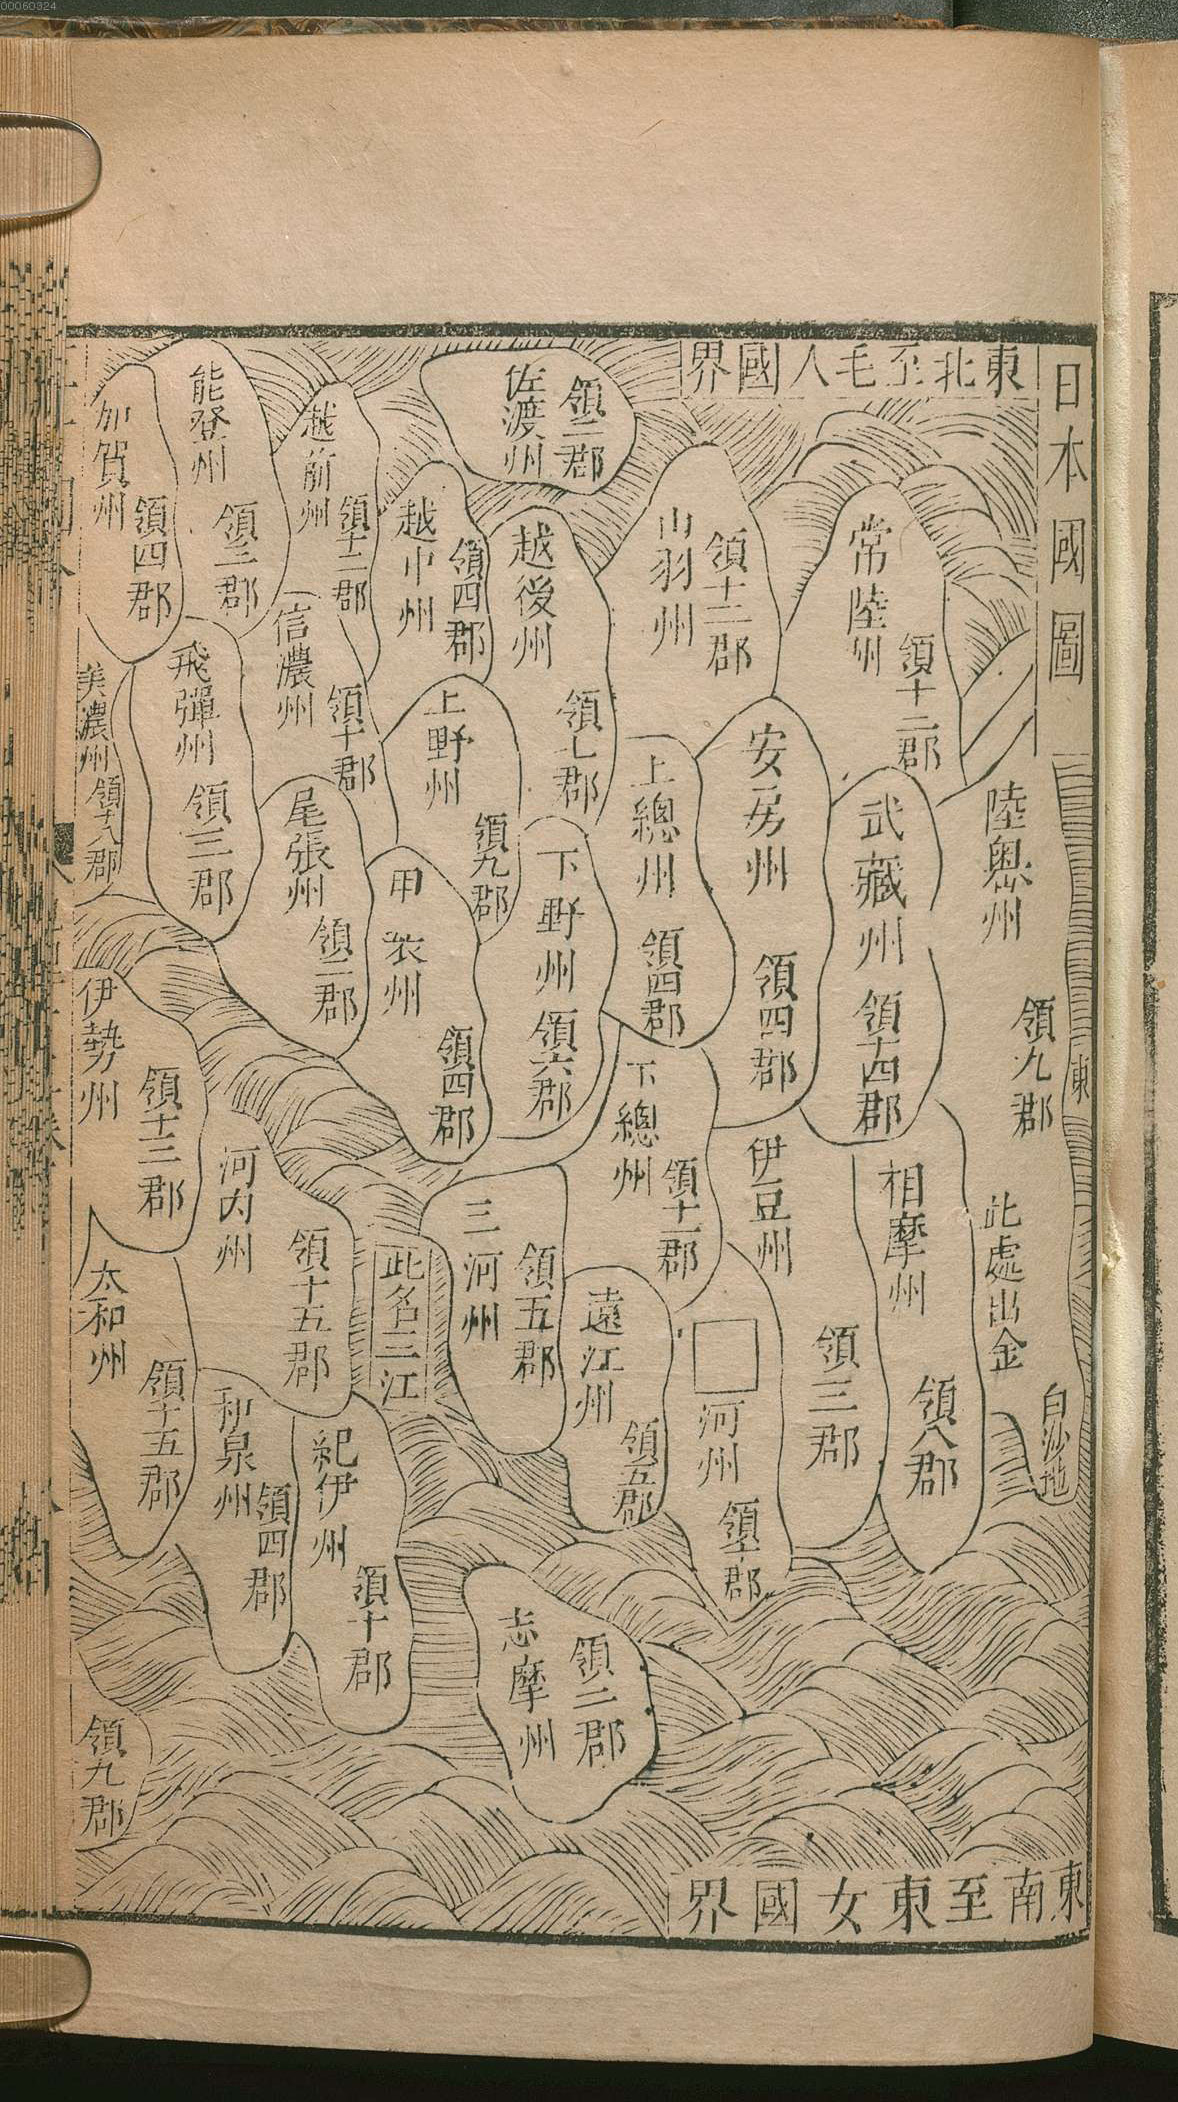 00060324
日本國圖
東北至毛人國界
陸奧州
領九郡
此處出金
白沙地
東
東南至東女國界
常陸州
領十二郡
武藏州
領十四郡
相摩州
領八郡
出羽州
領十二郡
安房州
領四郡
伊豆州
領三郡
上總州
領四郡
下總州
領十一郡
河州
佐渡州
領三郡
越後州
領七郡
下野州
領六郡
遠江州
領五郡
志摩州
領二郡
越中州
領四郡
上野州
領九郡
甲裴州
領四郡
三河州
領五郡
此名三江
越前州
領十二郡
信濃州
領十郡
尾張州
領二郡
河内州
領十五郡
紀伊州
領十郡
能登州
領三郡
飛彈州
領三郡
和泉州
領四郡
加賀州
領四郡
美濃州
領十八郡
伊勢州
領十三郡
太和州
領十五郡
領九郡